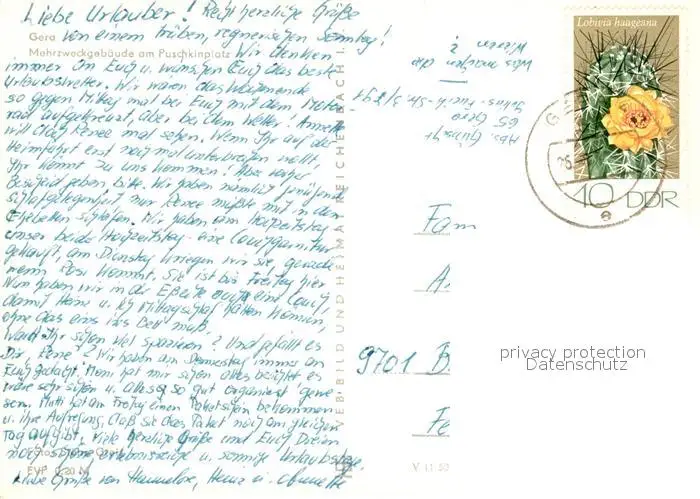 Liebe Urlauber! Recht herzliche Grüße
von einem trüben, regnerischen Sonntag!
Gera
Mehrzweckgebäude am Puschkinplatz
Wir denken
immer an Euch u. wünschen Euch das beste
Urlaubswetter. Wir waren das Wochenende
so gegen Mittag mal bei Euch mit dem Motor-
rad aufgekreuzt, aber bei dem Wetter! Annette
will doch Renee mal sehen. Wenn Ihr auf der
Heimfahrt erst noch mal unterbrechen wollt,
Ihr könnt zu uns kommen! Aber vorher
Bescheid geben, bitte. Wir haben nämlich genügend
Schlafgelegenheit nur Renee müßte mit in den
Ehebetten schlafen. Wir haben am Hochzeitstag
unser beider Hochzeitstag eine Couchgarnitur
gekauft, am Dienstag kriegen wir sie, gerade
wenn Rosi kommt. Sie ist bis Freitag hier
Nun haben wir in der Eßecke auch eine Couch,
damit Heinz u. ich Mittagschlaf halten können,
ohne das eins ins Bett muß.
Wart Ihr schon viel spazieren? Und gefällt es
Dir, Rene? Wir haben am Donnerstag immer an
Euch gedacht. Moni hat mir schon alles berichtet es
wäre sehr schön u. alles so gut organisiert gewe-
sen. Mutti hat am Freitag einen Paketschein bekommen
u. ihre Aufregung, daß sie das Paket noch am gleichen
Tag aufgibt. Viele herzliche Grüße und Euch Dreien
noch schöne erlebnisreiche u. sonnige Urlaubstage.
EVP 0,20 M
Liebe Grüße von Hannelore, Heinz u. Annette
VEB BILD UND HEIMAT REICHENBACH
Was machen die
?
Abs.
65 Gera
Lobivia haageana
10 DDR
Fam
A
9701 B
Fe
V 11 50
privacy protection
Datenschutz